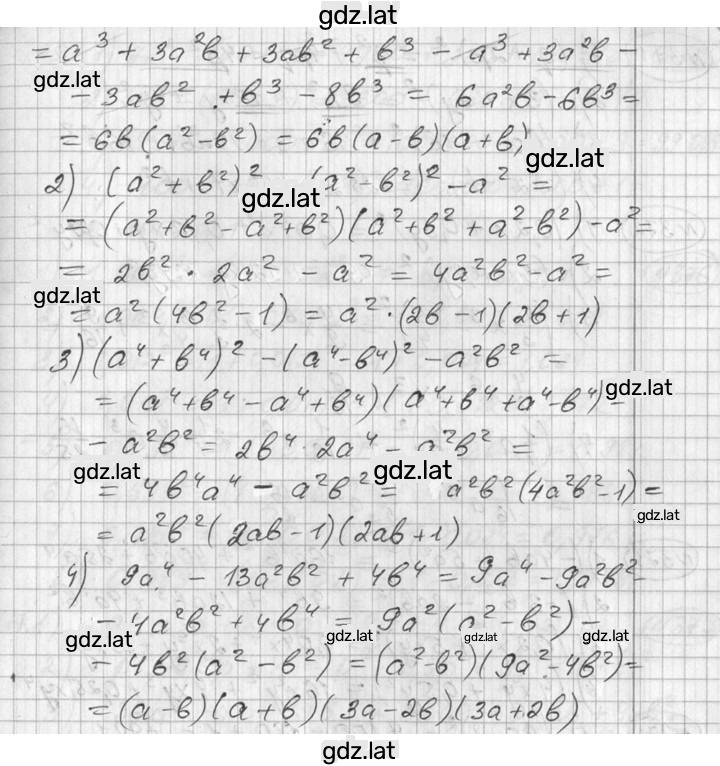 gdz.lat
= a³ + 3a²b + 3ab² + b³ - a³ + 3a²b -
gdz.lat
- 3ab² + b³ - 8b³ = 6a²b - 6b³ =
= 6b(a² - b²) = 6b(a - b)(a + b)
gdz.lat
2) (a² + b²)² (a² - b²)² - a² =
gdz.lat
= (a² + b² - a² + b²)(a² + b² + a² - b²) - a² =
= 2b² · 2a² - a² = 4a²b² - a² =
gdz.lat
= a²(4b² - 1) = a² · (2b - 1)(2b + 1)
3) (a⁴ + b⁴)² - (a⁴ - b⁴)² - a²b² =
gdz.lat
= (a⁴ + b⁴ - a⁴ + b⁴)(a⁴ + b⁴ + a⁴ - b⁴) -
- a²b² = 2b⁴ · 2a⁴ - a²b² =
gdz.lat gdz.lat
= 4b⁴a⁴ - a²b² = a²b²(4a²b² - 1) =
gdz.lat
= a²b²(2ab - 1)(2ab + 1)
4) 9a⁴ - 13a²b² + 4b⁴ = 9a⁴ - 9a²b² -
- 4a²b² + 4b⁴ = 9a²(a² - b²) -
gdz.lat gdz.lat gdz.lat gdz.lat
- 4b²(a² - b²) = (a² - b²)(9a² - 4b²) =
= (a - b)(a + b)(3a - 2b)(3a + 2b)
gdz.lat